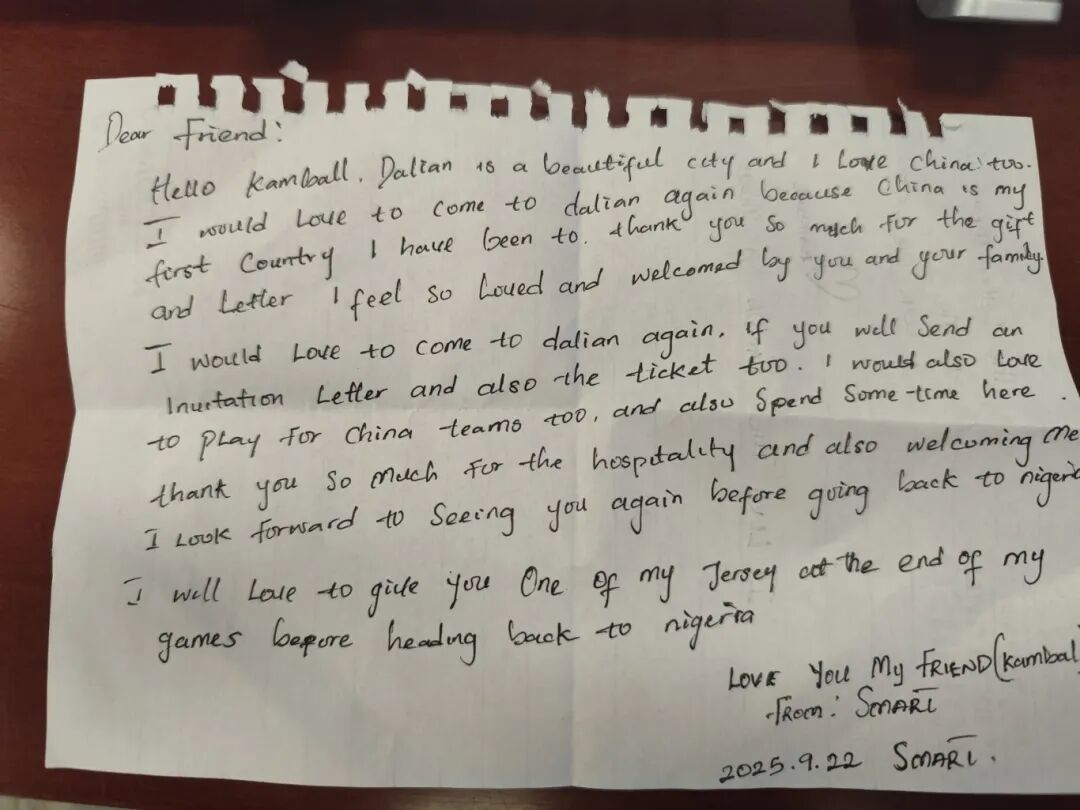 Dear Friend:
Hello Kamball. Dalian is a beautiful city and I Love China too.
I would Love to come to dalian again because China is my
first Country I have been to. thank you so much for the gift
and Letter I feel so Loved and welcomed by you and your family.
I would Love to come to dalian again, if you will Send an
Invitation Letter and also the ticket too. I would also Love
to play for China teams too, and also Spend Some time here.
thank you so much for the hospitality and also welcoming me
I Look forward to Seeing you again before going back to nigeria
I will Love to give you One of my Jersey at the end of my
games before heading back to nigeria
LOVE YOU MY FRIEND (Kambal
From: SMART
2025.9.22 SMART.